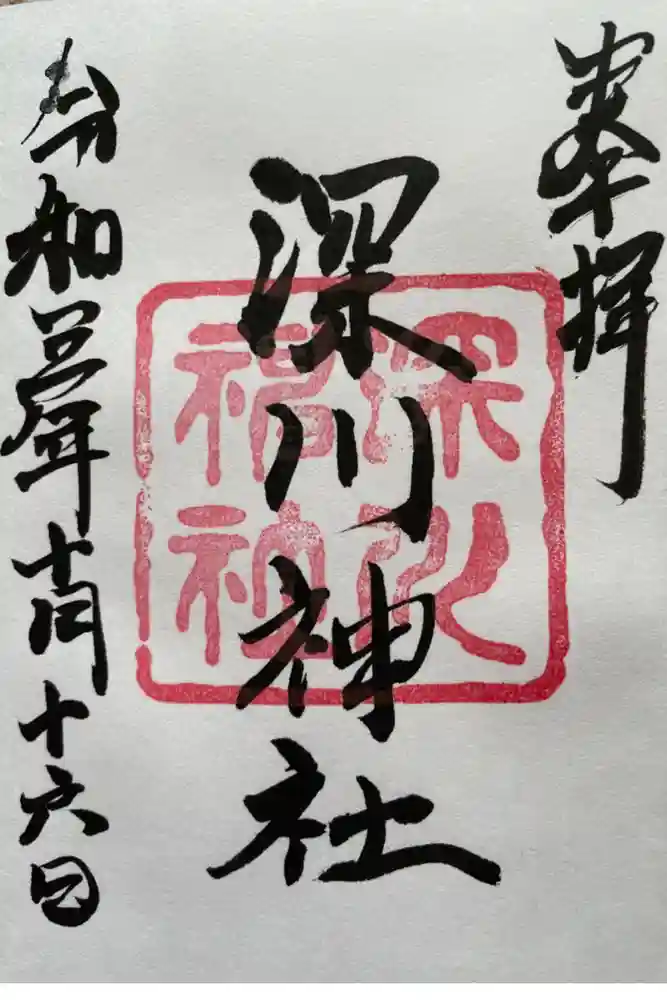 奉拝
深川神社
令和三年十月十六日
深川
神社